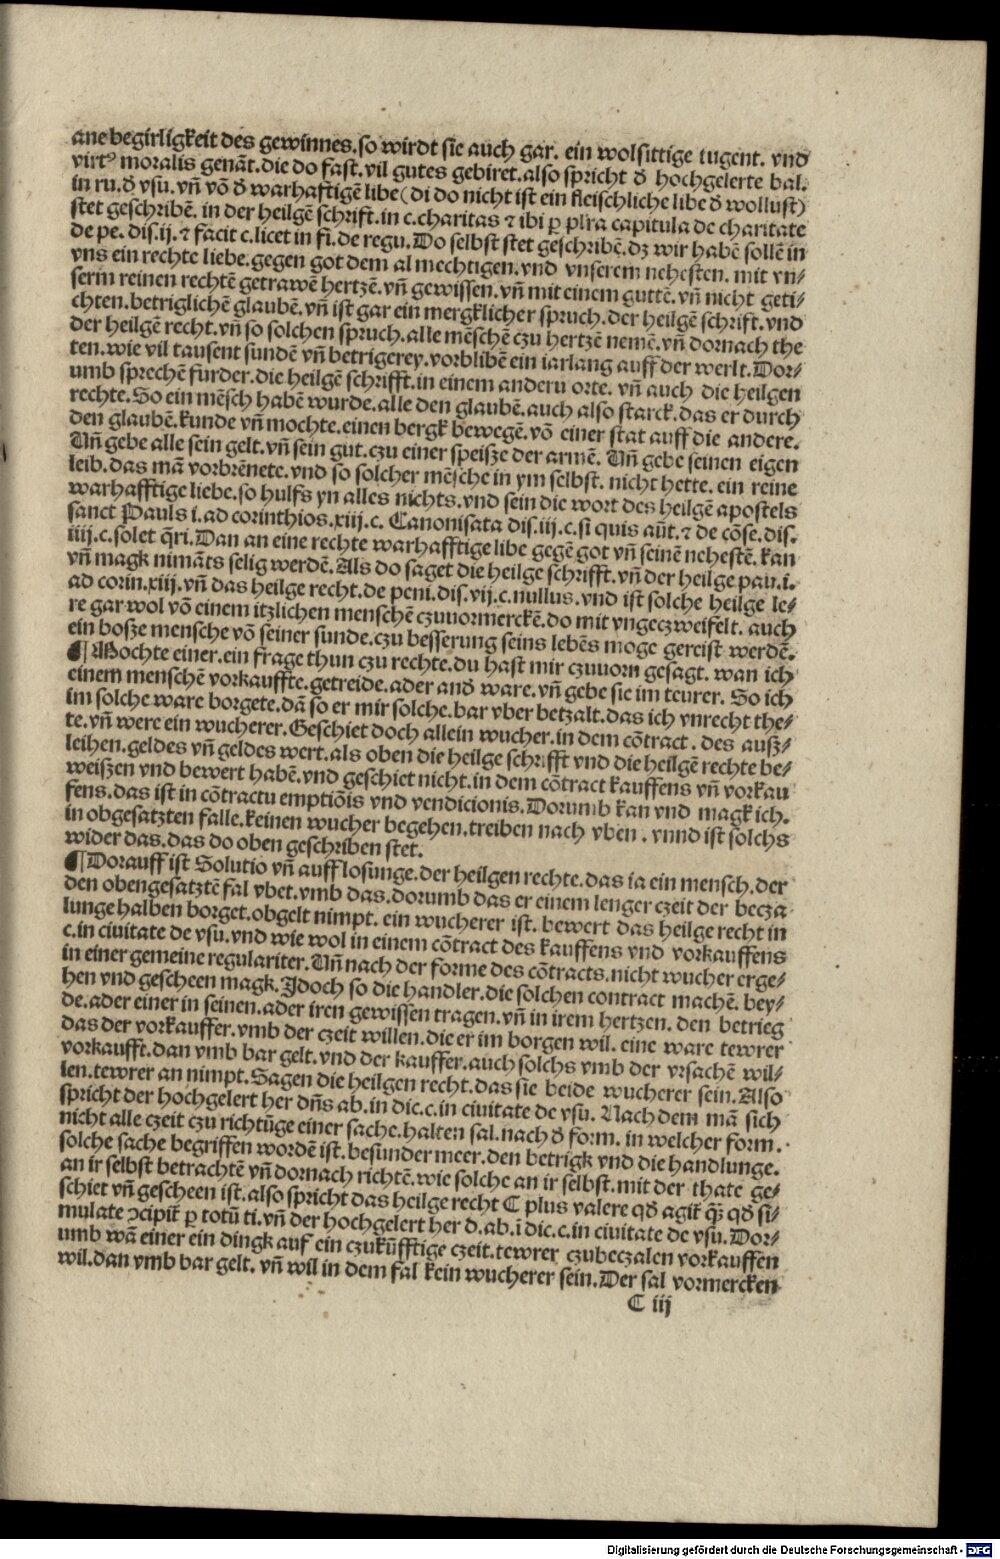 ane begirligkeit des gewinnes. so wirdt sie auch gar. ein wolsittige tugent. vnd
virtꝰ moralis genāt. die do fast. vil gutes gebiret. also spricht đ hochgelerte bal.
in ru. đ vsu. vñ vō đ warhaftigē libe (di do nicht ist ein fleischliche libe đ wollust)
stet geschribē. in der heilgē schrift. in c. charitas ⁊ ibi ꝑ plr̄a capitula de charitate
de pe. dis. ij. ⁊ facit c. licet in fi. de regu. Do selbst stet geschribē. dz wir habē sollē in
vns ein rechte liebe. gegen got dem al mechtigen. vnd vnserem nehesten. mit vn⸗
serm reinen rechtē getrawē hertzē. vñ gewissen. vñ mit einem guttē. vñ nicht geti⸗
chten. betriglichē glaubē. vñ ist gar ein mergklicher spruch. der heilgē schrift. vnd
der heilgē recht. vñ so solchen spruch. alle mēschē czu hertzē nemē. vñ dornach the
ten. wie vil tausent sundē vñ betrigerey. vorblibē ein iarlang auff der werlt. Dor⸗
umb sprechē furder. die heilgē schrifft. in einem anderu orte. vñ auch die heilgen
rechte. So ein mēsch habē wurde. alle den glaubē. auch also starck. das er durch
den glaubē. kunde vñ mochte. einen bergk bewegē. vō einer stat auff die andere.
Vñ gebe alle sein gelt. vñ sein gut. czu einer speisze der armē. Vñ gebe seinen eigen
leib. das mā vorbrēnete. vnd so solcher mēsche in ym selbst. nicht hette. ein reine
warhafftige liebe. so hulfs yn alles nichts. vnd sein die wort des heilgē apostels
sanct Pauls i. ad corinthios. xiij. c. Canonisata dis. iij. c. si quis aūt. ⁊ de cōse. dis.
iiij. c. solet q̄ri. Dan an eine rechte warhafftige libe gegē got vñ seinē nehestē. kan
vñ magk nimāts selig werdē. Als do saget die heilge schrifft. vñ der heilge pau. i.
ad corin. xiij. vñ das heilge recht. de peni. dis. vij. c. nullus. vnd ist solche heilge le⸗
re gar wol vō einem itzlichen menschē czuuormerckē. do mit vngeczweifelt. auch
ein bosze mensche vō seiner sunde. czu besserung seins lebēs moge gereist werdē.
¶ Mochte einer. ein frage thun czu rechte. du hast mir czuuorn gesagt. wan ich
einem menschē vorkauffte. getreide. ader anđ ware. vñ gebe sie im teurer. So ich
im solche ware borgete. dā so er mir solche. bar vber betzalt. das ich vnrecht the⸗
te. vñ were ein wucherer. Geschiet doch allein wucher. in dem cōtract. des ausz⸗
leihen. geldes vñ geldes wert. als oben die heilge schrifft vnd die heilgē rechte be⸗
weiszen vnd bewert habē. vnd geschiet nicht. in dem cōtract kauffens vñ vorkau
fens. das ist in cōtractu emptiōis vnd vendicionis. Dorumb kan vnd magk ich.
in obgesatzten falle. keinen wucher begehen. treiben nach vben. vnnd ist solchs
wider das. das do oben geschriben stet.
¶ Dorauff ist Solutio vñ auff losunge. der heilgen rechte. das ia ein mensch. der
den obengesatztē fal vbet. vmb das. dorumb das er einem lenger czeit der becza
lunge halben borget. obgelt nimpt. ein wucherer ist. bewert das heilge recht in
c. in ciuitate de vsu. vnd wie wol in einem cōtract des kauffens vnd vorkauffens
in einer gemeine regulariter. Vñ nach der forme des cōtracts. nicht wucher erge⸗
hen vnd gescheen magk. Jdoch so die handler. die solchen contract machē. bey⸗
de. ader einer in seinen. ader iren gewissen tragen. vñ in irem hertzen. den betrieg
das der vorkauffer. vmb der czeit willen. die er im borgen wil. eine ware tewrer
vorkaufft. dan vmb bar gelt. vnd der kauffer. auch solchs vmb der vrsachē wil⸗
len. tewrer an nimpt. Sagen die heilgen recht. das sie beide wucherer sein. Also
spricht der hochgelert her dn̄s ab. in dic. c. in ciuitate de vsu. Nach dem mā sich
nicht alle czeit czu richtūge einer sache. halten sal. nach đ form. in welcher form.
solche sache begriffen wordē ist. besunder meer. den betrigk vnd die handlunge.
an ir selbst betrachtē vñ dornach richtē. wie solche an ir selbst. mit der thate ge⸗
schiet vñ gescheen ist. also spricht das heilge recht C plus valere qđ agit̄ q̄ꝫ qđ si⸗
mulate ꝯcipit̄ ꝑ totū ti. vñ der hochgelert her d. ab. ī dic. c. in ciuitate de vsu. Dor⸗
umb wā einer ein dingk auf ein czukūfftige czeit. tewrer czubeczalen vorkauffen
wil. dan vmb bar gelt. vñ wil in dem fal kein wucherer sein. Der sal vormercken
C iij
Digitalisierung gefördert durch die Deutsche Forschungsgemeinschaft - DFG